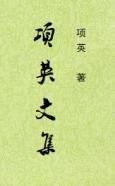 项英 著
项英文集